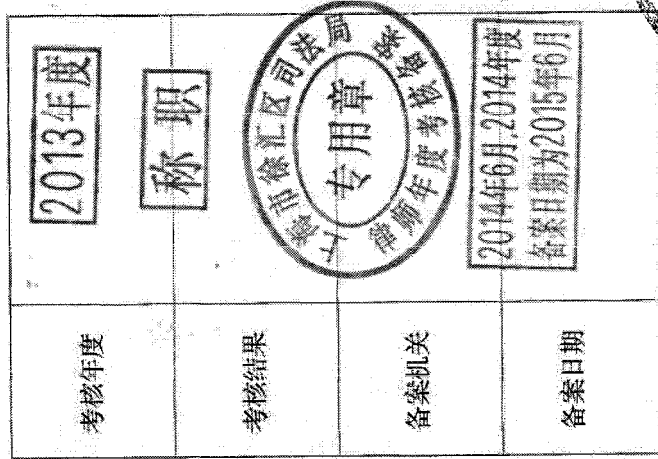 考核年度
2013年度
考核结果
称职
备案机关
上海市徐汇区司法局
专用章
律师年度考核备案
备案日期
2014年6月,2014年度
备案日期为2015年6月